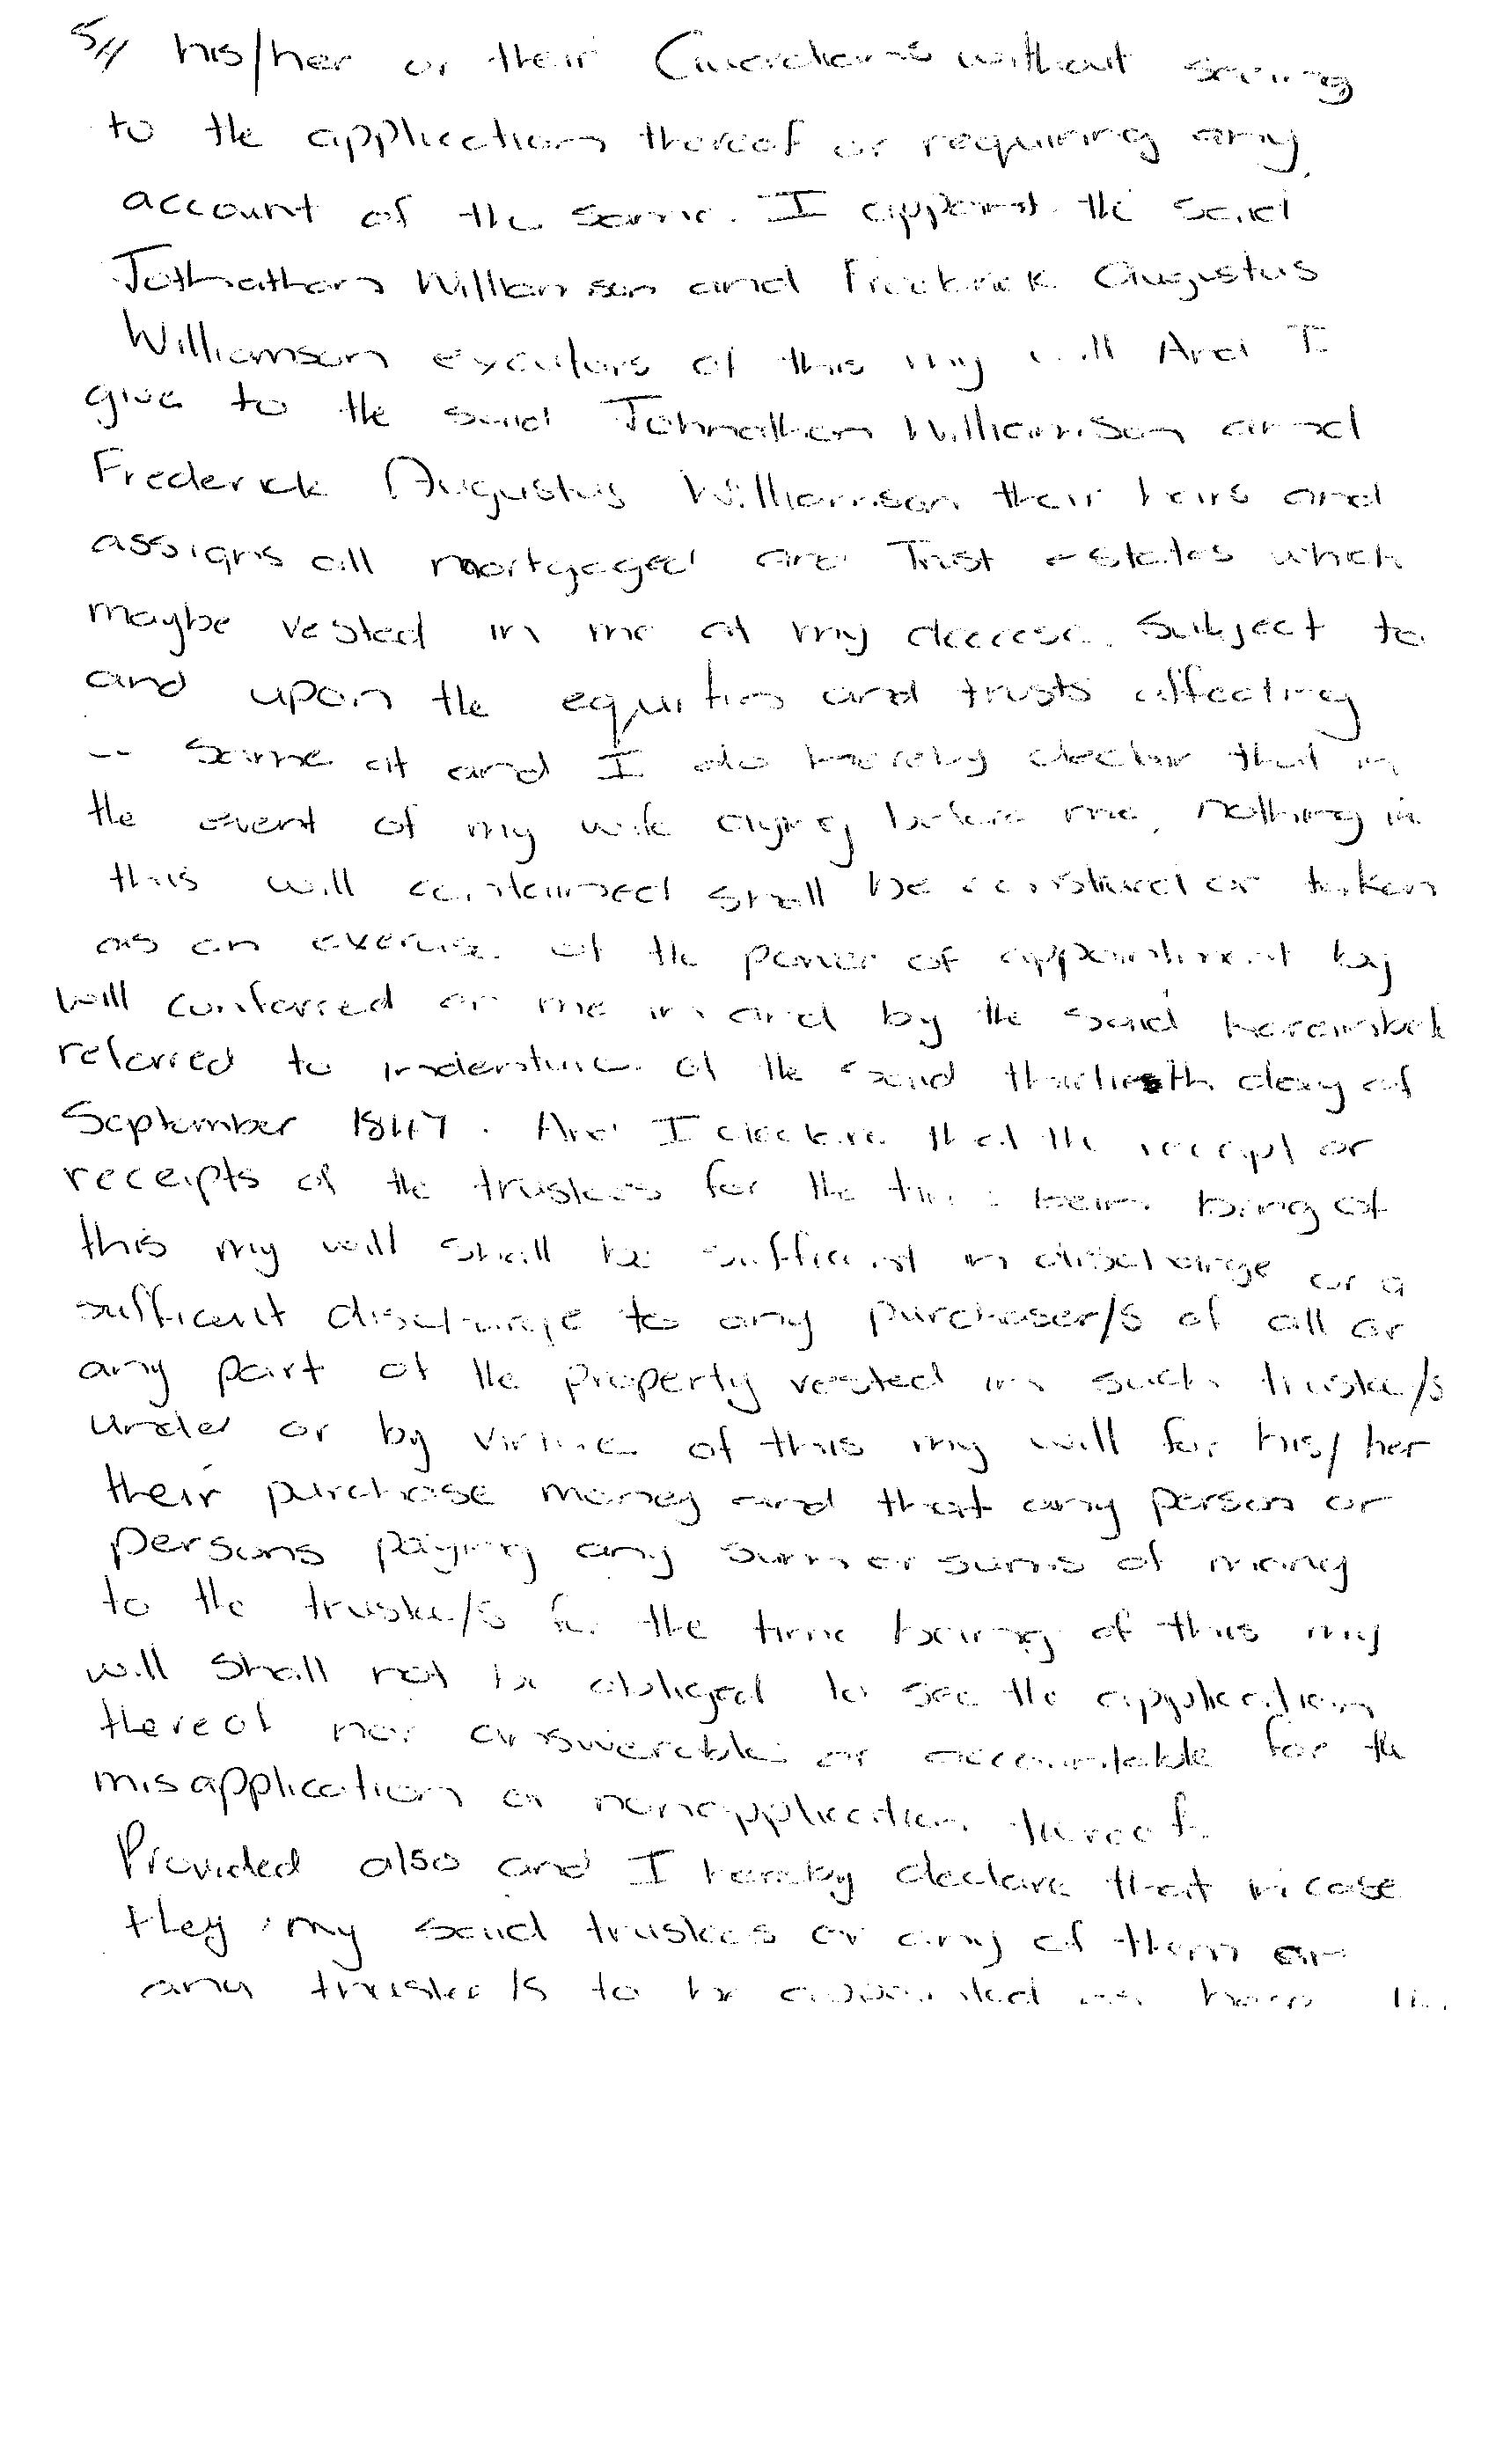 5/1 his/her or their Guardians without seeing
to the application thereof or requiring any
account of the same. I appoint the said
Johnathan Williamson and Frederick Augustus
Williamson executors of this my will And I
give to the said Johnathan Williamson and
Frederick Augustus Williamson their heirs and
assigns all mortgaged and Trust estates which
maybe vested in me at my decease. Subject to
and upon the equities and trusts affecting
-- same at and I do hereby declare that in
the event of my wife dying before me, nothing in
this will contained shall be construed or taken
as an exercise of the power of appointment by
will conferred on me in and by the said
referred to indenture of the said thirtieth day of
September 1847. And I declare that the receipt or
receipts of the trustees for the time being of
this my will shall be sufficient in discharge or a
sufficent discharge to any purchaser/s of all or
any part of the property vested in such trustee/s
under or by virtue of this my will for his/her
their purchase money and that any person or
persons paying any sum or sums of money
to the trustee/s for the time being of this my
will shall not be obliged to see the application
thereof nor answerable or accountable for the
misapplication or nonapplication thereof.
Provided also and I hereby declare that in case
they my said trustees or any of them or
any trustee/s to be appointed as